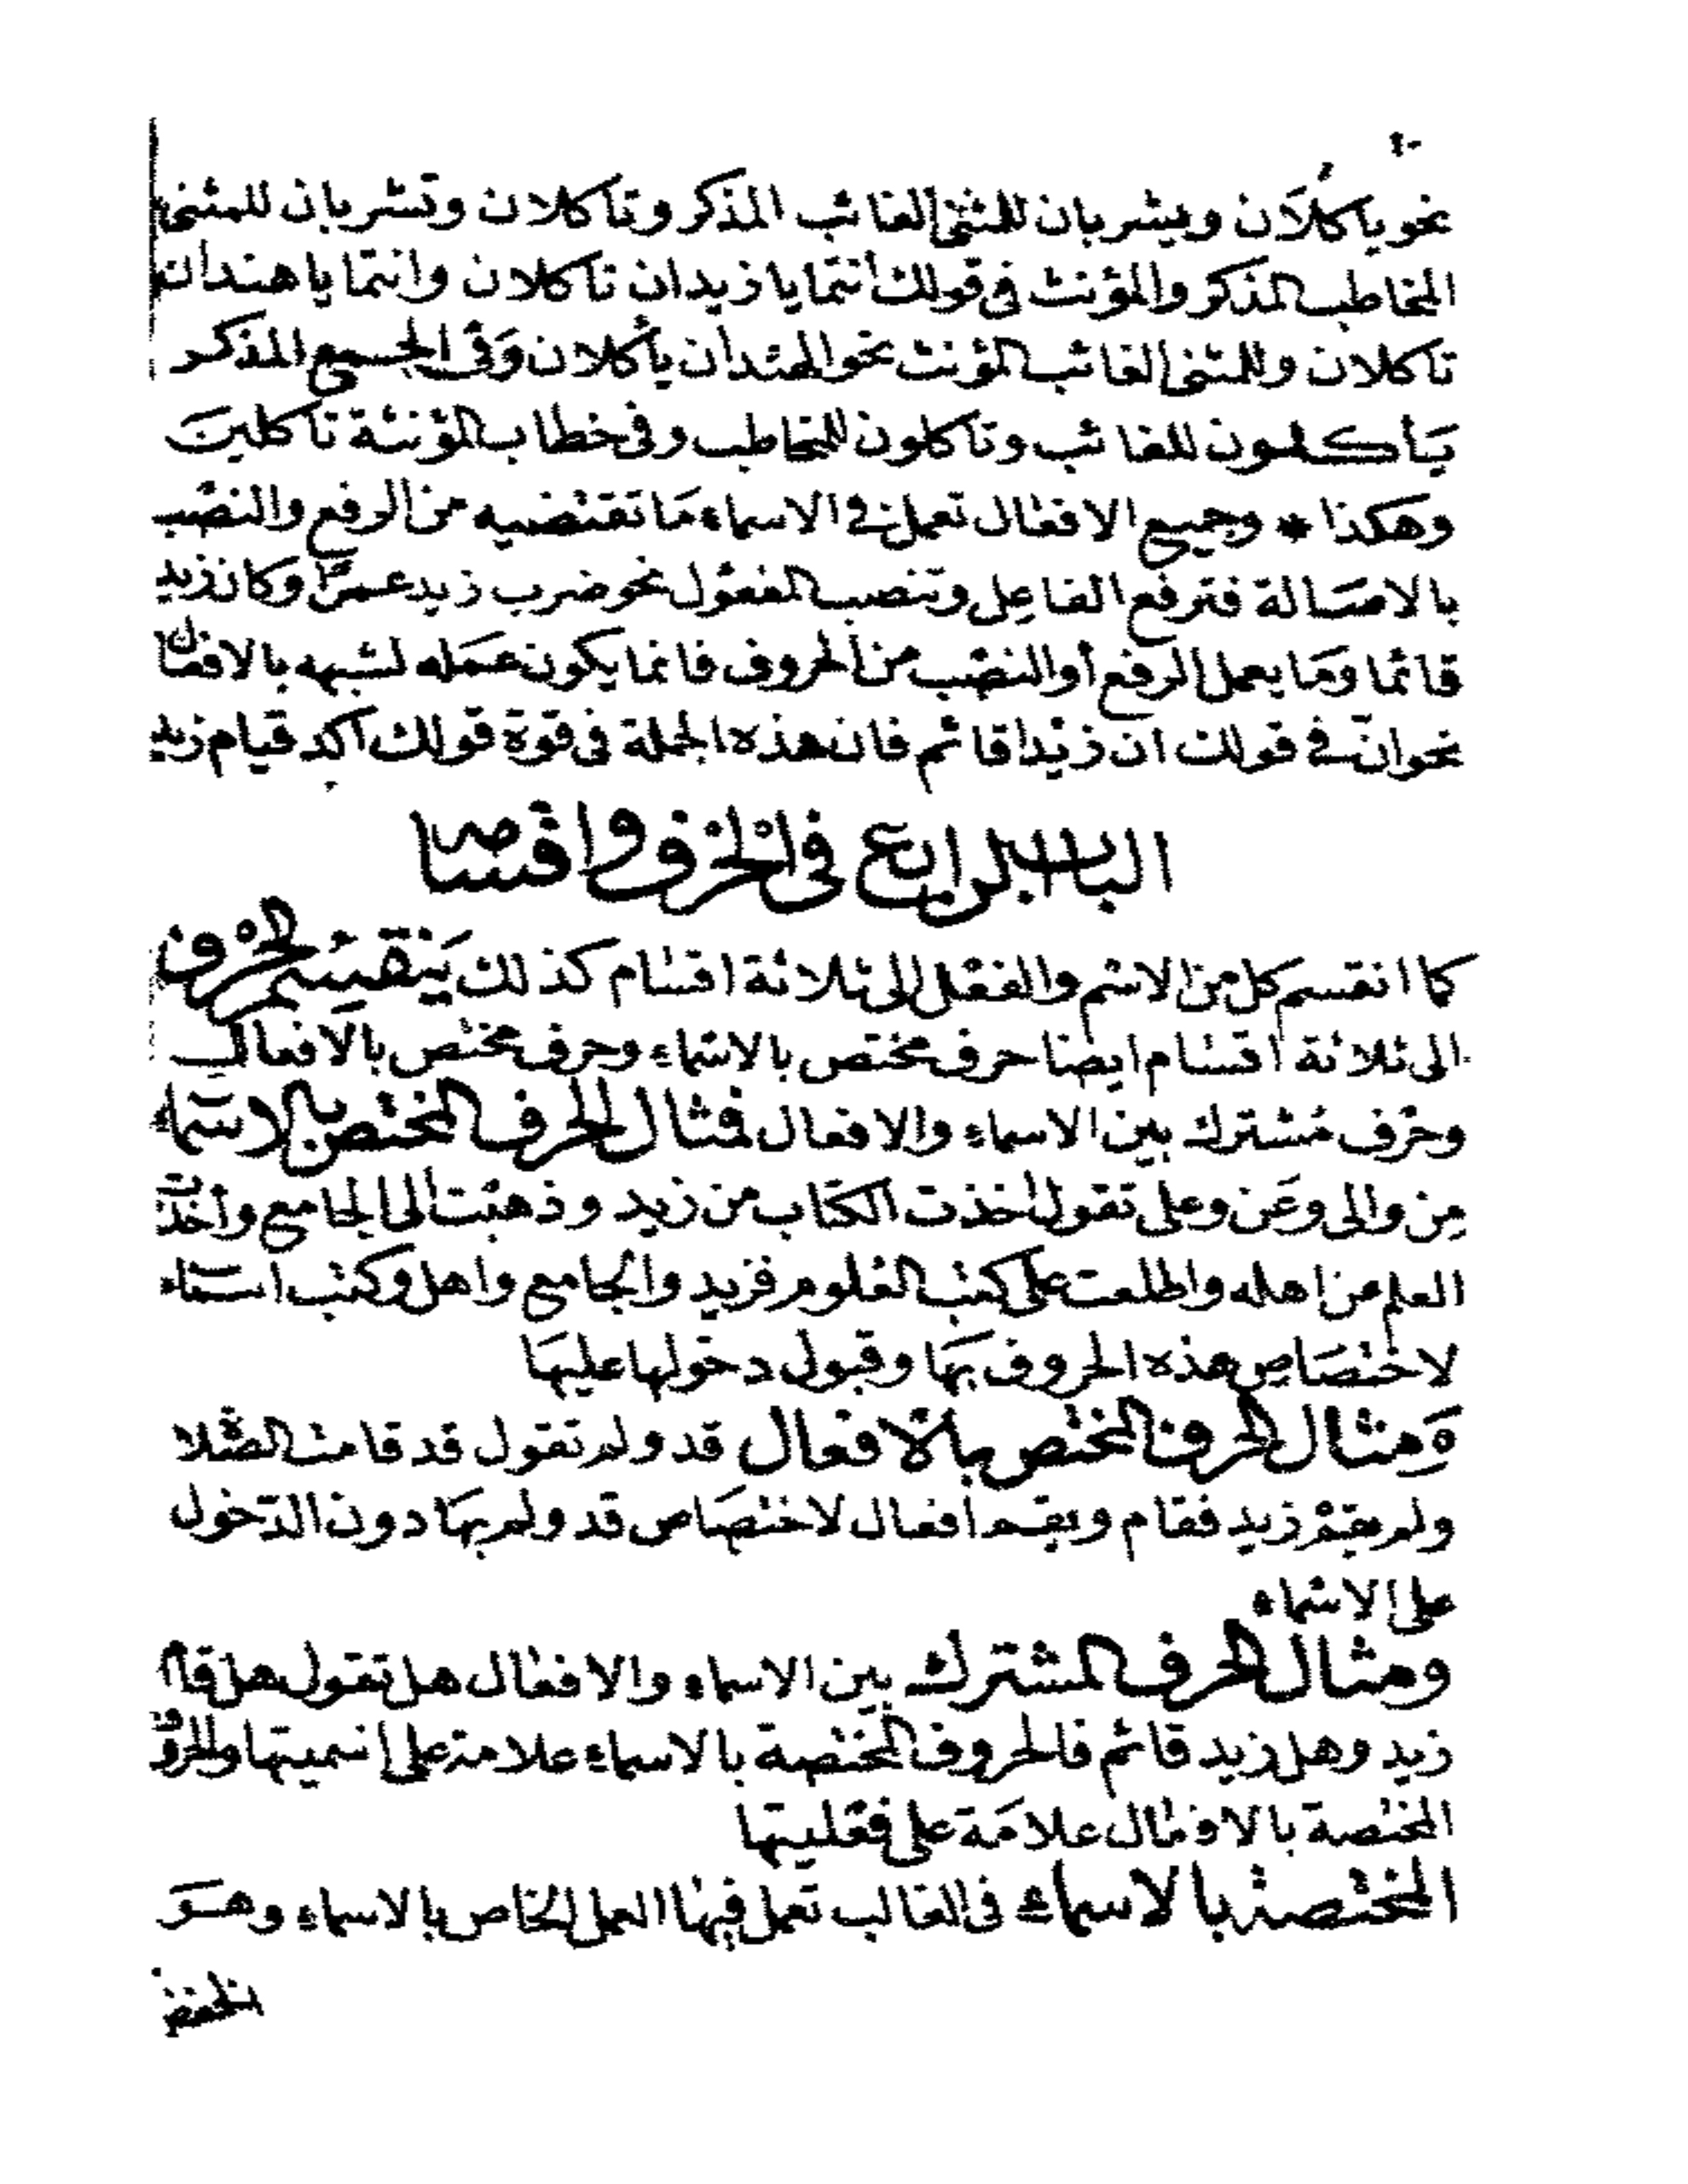 ١٠
نحو يأكلان ويشربان للمثنى الغائب المذكر وتاكلان وتشربان للمثنى
المخاطب المذكر والمؤنث فى قولك أنتما يا زيدان تاكلان وانتما يا هندان
تاكلان وللمثنى الغائب المؤنث نحو الهندان يأكلان وفى الجمع المذكر
يأكلون للغائب وتاكلون للمخاطب وفى خطاب المؤنثة تاكلين
وهكذا * وجميع الافعال تعمل فى الاسماء ما تقتضيه من الرفع والنصب
بالاصالة فترفع الفاعل وتنصب المفعول نحو ضرب زيد عمرًا وكان زيد
قائما وما يعمل الرفع أو النصب من الحروف فانما يكون عمله لشبهه بالافعال
نحو انّ فى قولك ان زيدا قائم فان هذه الجملة فى قوة قولك اكد قيام زيد
الباب الرابع فى الحرف واقسامه
كما انقسم كل من الاسم والفعل الى ثلاثة اقسام كذلك يَنقسِم الحرف
الى ثلاثة اقسام ايضا حرف مختص بالاسماء وحرف مختص بالافعال
وحرف مُشترك بين الاسماء والافعال فمثال الحرف المختص بالاسماء
مِن والى وعَن وعلى تقول اخذت الكتاب من زيد وذهبت الى الجامع وأخذت
العلم عن اهله واطلعت على كتب العلوم فزيد والجامع واهل وكتب اسماء
لاختصاص هذه الحروف بها وقبول دخولها عليها
ومثال الحرف المختص بالافعال قد ولم تقول قد قامت الصلا
ولم يقم زيد فقام ويقم افعال لاختصاص قد ولم بها دون الدخول
على الاسماء
ومثال الحرف المشترك بين الاسماء والافعال هل تقول هل قام
زيد وهل زيد قائم فالحروف المختصة بالاسماء علامة على اسميتها والحروف
المختصة بالافعال علامَة على فعليتها
المختصة بالاسماء فى الغالب تعمل فيها العمل الخاص بالاسماء وهو
الخفض